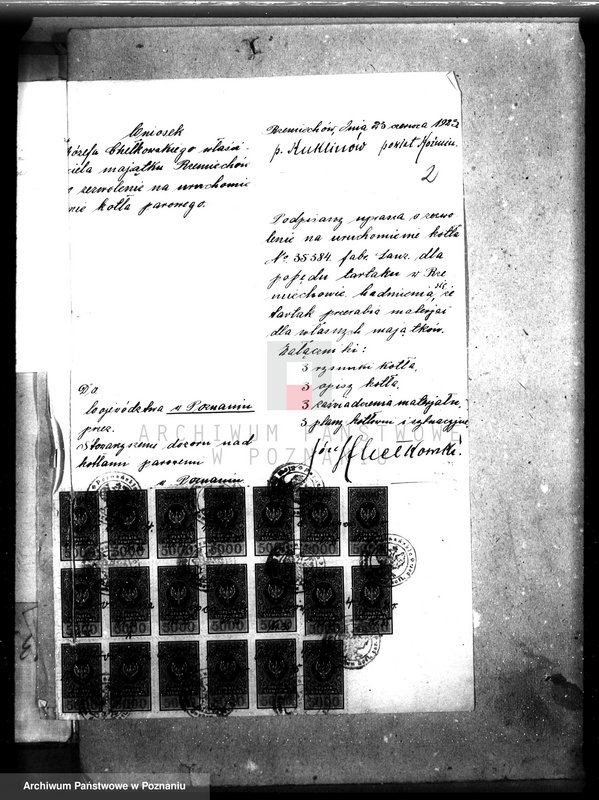 Wniosek
Józefa Chełkowskiego właści-
ciela majątku Rzemiechów
o zezwolenie na uruchomie
nie kotła parowego.
Rzemiechów, dnia 23 czerwca 1923
p. Kuklinów powiat Koźmin.
2
Podpisany uprasza o zezwo
lenie na uruchomienie kotła
No. 35584 fabr. Lanz. dla
popędu tartaku w Rze
miechowie. Nadmienia się, że
tartak przerabia materjał
dla własnych majątków.
Załączniki:
3 rysunki kotła,
3 opisy kotła,
3 zaświadczenia materjału,
3 plany kotłowni i sytuacyjne
Józef Chełkowski.
Do
Województwa w Poznaniu
przez
Stowarzyszenie dozoru nad
kotłami parowemi
w Poznaniu
ARCHIWUM PAŃSTWOWE
W POZNANIU
5000 5000 5000 5000 5000 5000 5000
5000 5000 5000 5000 5000 5000 5000
5000 5000 5000 5000 5000 5000
Archiwum Państwowe w Poznaniu